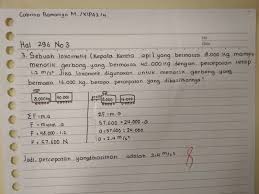 Cabrina Ramonga M. /XIPAS 14
Hal 296 No 3
3. Sebuah lokomotif (kepala kereta api) yang bermassa 8.000 kg mampu
menarik gerbong yang bermassa 40.000 kg dengan percepatan tetap
1.2 m/s² Jika lokomotif digunakan untuk menarik gerbong yang
bermassa 16.000 kg. berapa percepatan yang dihasilkannya
8.000 kg 40.000
ΣF = m.a
F = m total . a
F = 48.000 . 1.2
F = 57.600 N
ΣF = m.a
a = 57.600 : 24.000
a = 2.4 m/s²
Jadi, percepatan yang dihasilkan adalah 2.4 m/s²